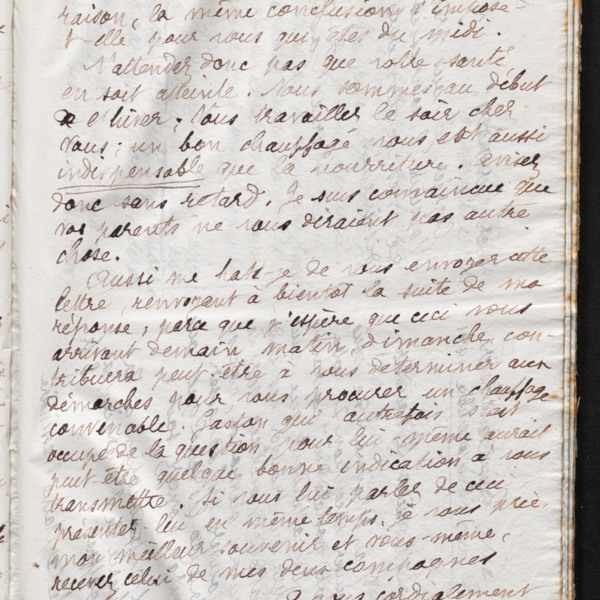 raison, la même conclusion s'impose-
t-elle pour vous qui êtes du midi.
N'attendez donc pas que votre santé
en soit atteinte. Nous sommes au début
de l'hiver; Vous travaillez le soir chez
vous; un bon chauffage vous est aussi
indispensable que la nourriture. avisez
donc sans retard. Je suis convaincue que
vos parents ne vous diraient pas autre
chose.
Aussi me hâté-je de vous envoyer cette
lettre, renvoyant à bientôt la suite de ma
réponse, parce que j'espère que ceci vous
arrivant demain matin, dimanche, con-
tribuera peut être à vous déterminer aux
démarches pour vous procurer un chauffage
convenable. Gaston qui autrefois s'est
occupé de la question pour lui même aurait
peut être quelque bonne indication à vous
transmettre. Si vous lui parlez de ceci,
présentez lui en même temps, je vous prie,
mon meilleur souvenir et vous-même,
recevez celui de mes deux compagnes
cordialement